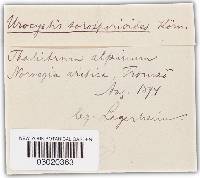 Urocystis sorosporioides Körn.
Thalictrum alpinum
Norvegia arctica, Tromsö
Aug. 1894
leg. Lagerheim
NEW YORK BOTANICAL GARDEN
03020363